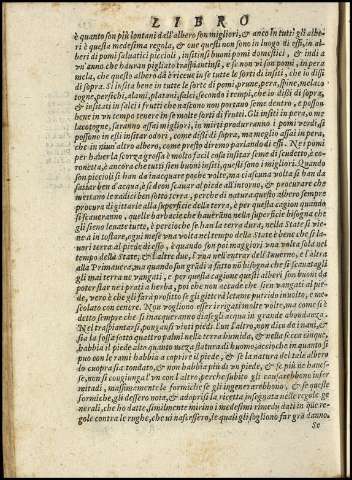 LIBRO
è quanto son più lontani dell'albero son migliori, & anco in tutti gli albe
ri è questa medesima regola, & oue questi non sono in luogo di essi, in al
beri di pomi saluatici piccioli, insitinsi buoni pomi domestici, & indi a
vn'anno che hauran pigliato traspiantinsi, e se non vi son pomi, in pera
mela, che questo albero dà è riceue in se tutte le sorti di insiti, che io dissi
di sopra. Si insita bene in tutte le sorti di pomi, prune, pera, spine, melaco
togne, persichi, alami, platani, salici, secondo i tempi, che io dissi di sopra,
& insitati in salci i frutti che nascono non portano seme dentro, e posson
bene in vn tempo tenere in se molte sorti di frutti. Gli insiti in pera, o me
lacotogne, saranno assai migliori, in mirti produrranno i pomi verdi, &
possono in essi insitar odori, come dissi di sopra, ma meglio assai in pera,
che in niun'altro albero, come presto diremo parlando di essi. Ne i pomi
per hauer la scorza grossa è molto facil cosa insitar seme di scudetto, è co-
ronetta, è ancora che tutti sien buoni insiti, questi sono i migliori. Quando
son piccioli si han da inacquare poche volte, ma ciascuna volta si han da
satiar ben d'acqua, è si deon scauar al piede all'intorno, & procurare che
mettano le radici ben sotto terra, perche di natura questo albero sempre
procura di gittarle alla superficie della terra, è per questa cagion quando
si scaueranno, quelle barbucie che haueranno nella superficie bisogna che
gli sieno leuate tutte, percioche se han la terra dura, nella State si vie-
ne a intostare, ogni mese vna volta nel tempo della State è bene che si la-
uori terra al piede di esso, è quando son poi maggiori vna volta sola nel
tempo della State; & l'altre due, l'vna nell'entrar dell'Inuerno, e l'altra
alla Primauera, ma quando son grandi a fatto nō bisogna che si scauatagli
gli mai terra ne vangati, e per questa cagione questi alberi son buoni da
poter star ne i prati a herba, poi che non accade che sien vangati al pie-
de, vero è che gli farà profitto se gli gitterà letame putrido in uolto, e me-
scolato con cenere. Non vogliono esser irrigati molte volte, ma come si è
detto sempre che s'inacqueranno diasegli acqua in grande abondanza.
Nel traspiantarsi, pongansi vinti piedi l'un l'altro, non dico da inanti, &
sia la fossa fatta quattro palmi nella terra humida, & nella secca cinque,
habbia il piede alto quanto mezza statura d'huomo, accioche in quanto si
può con le rami habbia a coprire il piede, & se la natura del tale albero
fu coupra sia tondato, & non habbia più d'vn piede, & se più ne haues-
se, non si congiunga l'vn con l'altro, perche subito gli causarebbono infer
mitadi, massimamente le formiche se gli ingenerarebbono, & se queste
formiche, gli dessero nota, & adoprisi la ricetta insegnata nelle regole ge
nerali, che ho datte, similmente mirino i medesimi rimedij dati in que re-
gole contra le rughe, che vi nascessero, le quali gli sogliono far grā danno.
Se